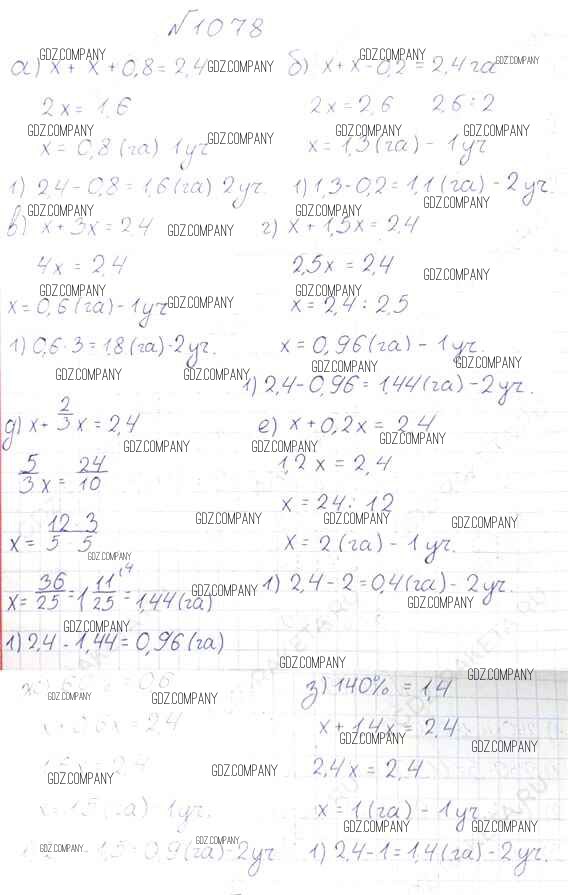 №1078
а) x + x + 0,8 = 2,4
2x = 1,6
x = 0,8 (га) 1 уч
1) 2,4 - 0,8 = 1,6 (га) 2 уч.
б) x + x - 0,2 = 2,4 га
2x = 2,6 2,6 : 2
x = 1,3 (га) - 1 уч
1) 1,3 - 0,2 = 1,1 (га) - 2 уч.
в) x + 3x = 2,4
4x = 2,4
x = 0,6 (га) - 1 уч
1) 0,6 · 3 = 1,8 (га) - 2 уч.
г) x + 1,5x = 2,4
2,5x = 2,4
x = 2,4 : 2,5
x = 0,96 (га) - 1 уч.
1) 2,4 - 0,96 = 1,44 (га) - 2 уч.
д) x + 2/3 x = 2,4
5/3 x = 24/10
x = 12 · 3 / 5 · 5
x = 36/25 = 1 11/25 = 1,44 (га)
1) 2,4 - 1,44 = 0,96 (га)
е) x + 0,2x = 2,4
1,2x = 2,4
x = 24 : 12
x = 2 (га) - 1 уч.
1) 2,4 - 2 = 0,4 (га) - 2 уч.
ж) = 0,6
x + 0,6x = 2,4
= 2,4
x = 1,5 (га) - 1 уч.
1,5 = 0,9 (га) - 2 уч
з) 140% = 1,4
x + 1,4x = 2,4
2,4x = 2,4
x = 1 (га) - 1 уч
1) 2,4 - 1 = 1,4 (га) - 2 уч.
GDZ.COMPANY